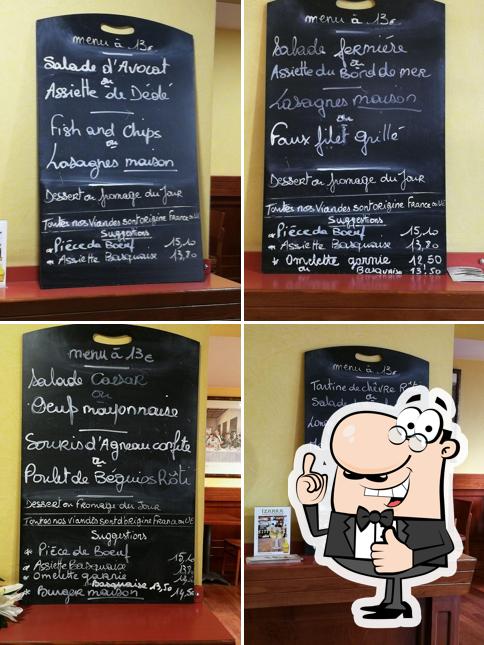 menu à 13€
Salade d'Avocat
ou
Assiette de Dédé
Fish and Chips
ou
Lasagnes maison
Dessert ou fromage du Jour
Toutes nos Viandes sont d'origine France ou UE
Suggestions
* Pièce de Boeuf 15,10
* Assiette Basquaise 13,80
menu à 13€
Salade fermière
ou
Assiette du Bord de mer
Lasagnes maison
ou
Faux filet grillé
Dessert ou fromage du Jour
Toutes nos Viandes sont d'origine France ou UE
Suggestions
* Pièce de Boeuf 15,10
* Assiette Basquaise 13,80
* Omelette garnie 12,50
ou Basquaise 13,50
menu à 13€
Salade Caesar
ou
Oeuf mayonnaise
Souris d'Agneau confite
ou
Poulet de Béguios Rôti
Dessert ou Fromage du Jour
Toutes nos Viandes sont d'origine France ou UE
Suggestions
* Pièce de Boeuf 15,10
* Assiette Basquaise
* Omelette garnie
Basquaise 13,50
* Burger maison 14,50
menu à 13€
Tartine de chèvre Rôti
ou
IZARRA